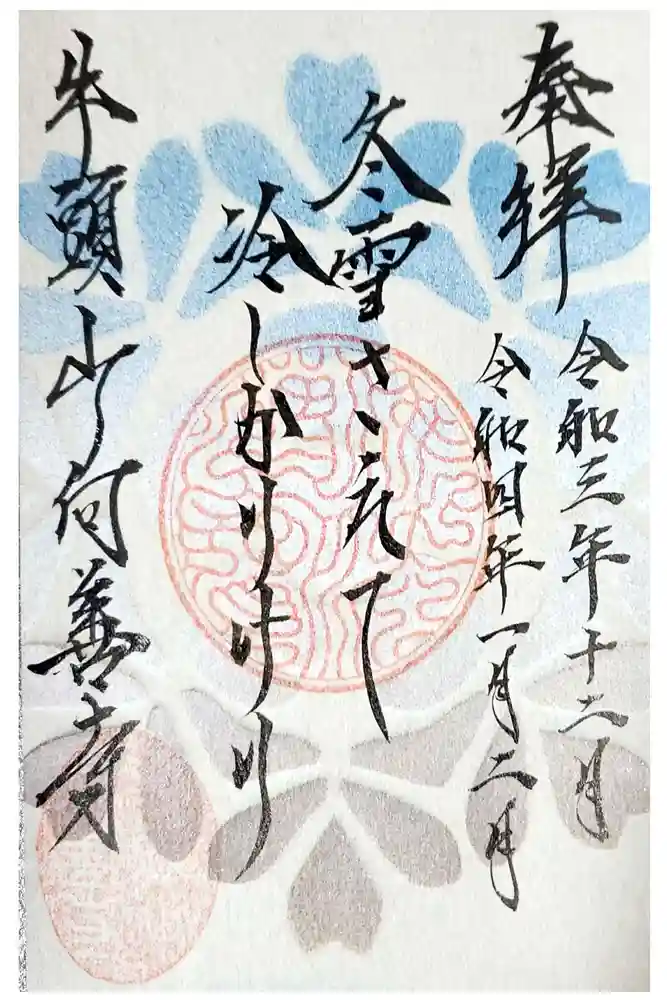 奉拝
令和三年十二月
令和四年一月二月
冬雪さえて
冷しかりけり
牛頭山何善寺